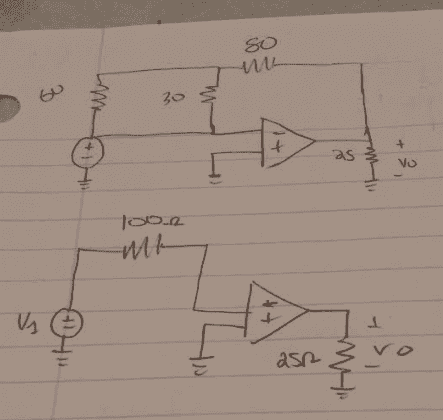 80
30
+
-
-
+
25
+
Vo
-
100Ω
V1
+
-
+
+
25Ω
Vo
-